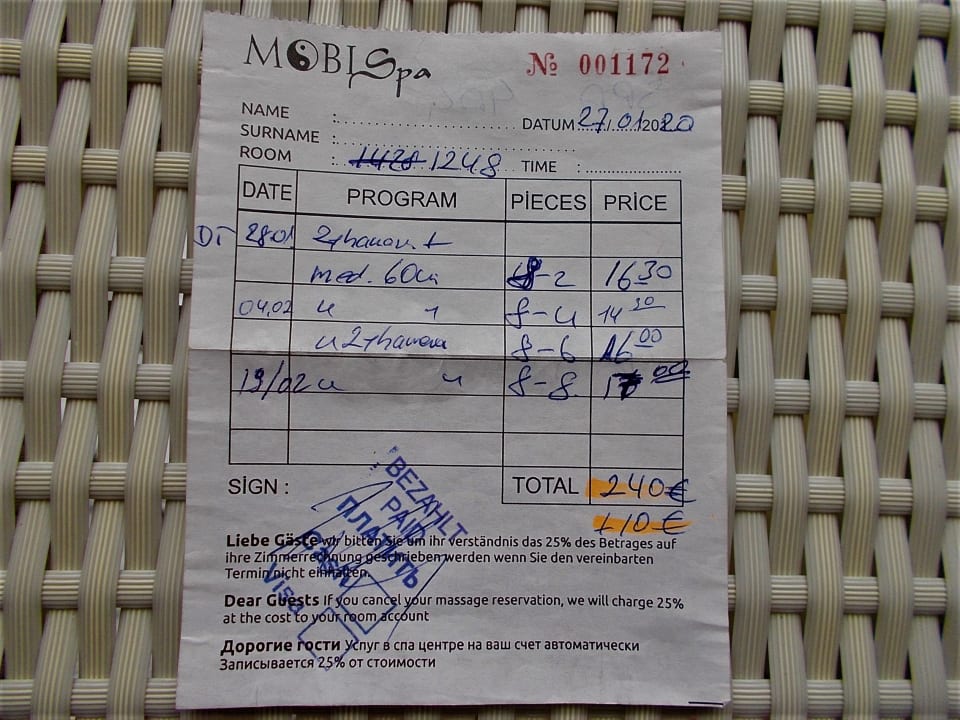 MOBI Spa
№ 001172
NAME :
DATUM 27/01/2020
SURNAME :
ROOM : 1428 1248 TIME :
DATE PROGRAM PİECES PRİCE
DT 28.01
med. 60 8-2 16 30
04.02 8-4 14 30
8-6 16 00
19/02 8-8 17 00
SİGN : TOTAL 240€
+10€
BEZAHLT
PAID
ПЛАТИТЬ
VISA
Liebe Gäste wir bitten Sie um ihr verständnis das 25% des Betrages auf
ihre Zimmerrechnung geschrieben werden wenn Sie den vereinbarten
Termin nicht einhalten.
Dear Guests If you cancel your massage reservation, we will charge 25%
at the cost to your room account
Дорогие гости Услуг в спа центре на ваш счет автоматически
Записывается 25% от стоимости